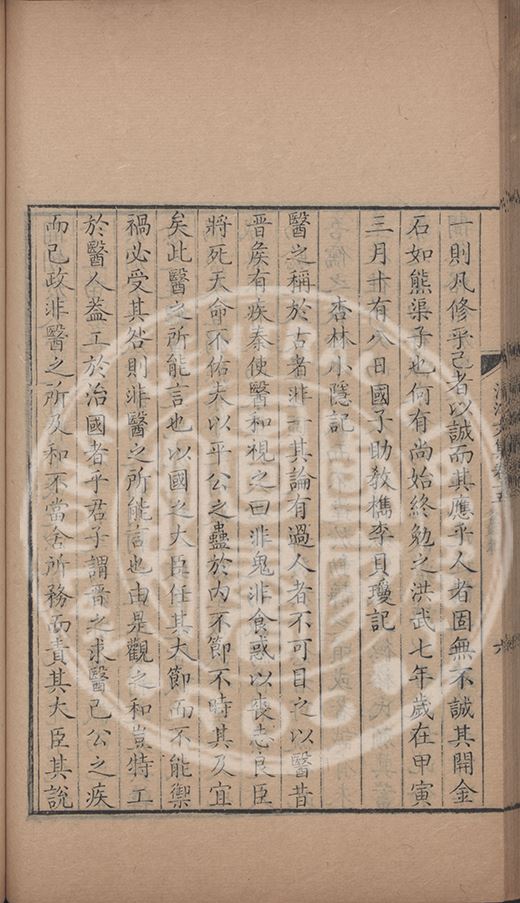 一則凡修乎己者以誠而其應乎人者固無不誠其開金
石如熊渠子也何有尚始終勉之洪武七年歲在甲寅
三月十有八日國子助教檇李貝瓊記
杏林小隱記
醫之稱於古者非一其論有過人者不可目之以醫昔
晉矦有疾秦使醫和視之曰非鬼非食惑以喪志良臣
將死天命不佑夫以平公之蠱於内不節不時其及宜
矣此醫之所能言也以國之大臣任其大節而不能禦
禍必受其咎則非醫之所能言也由是觀之和豈特工
於醫人葢工於治國者乎君子謂晉之求醫已公之疾
而已政非醫之所及和不當舍所務而責其大臣其說